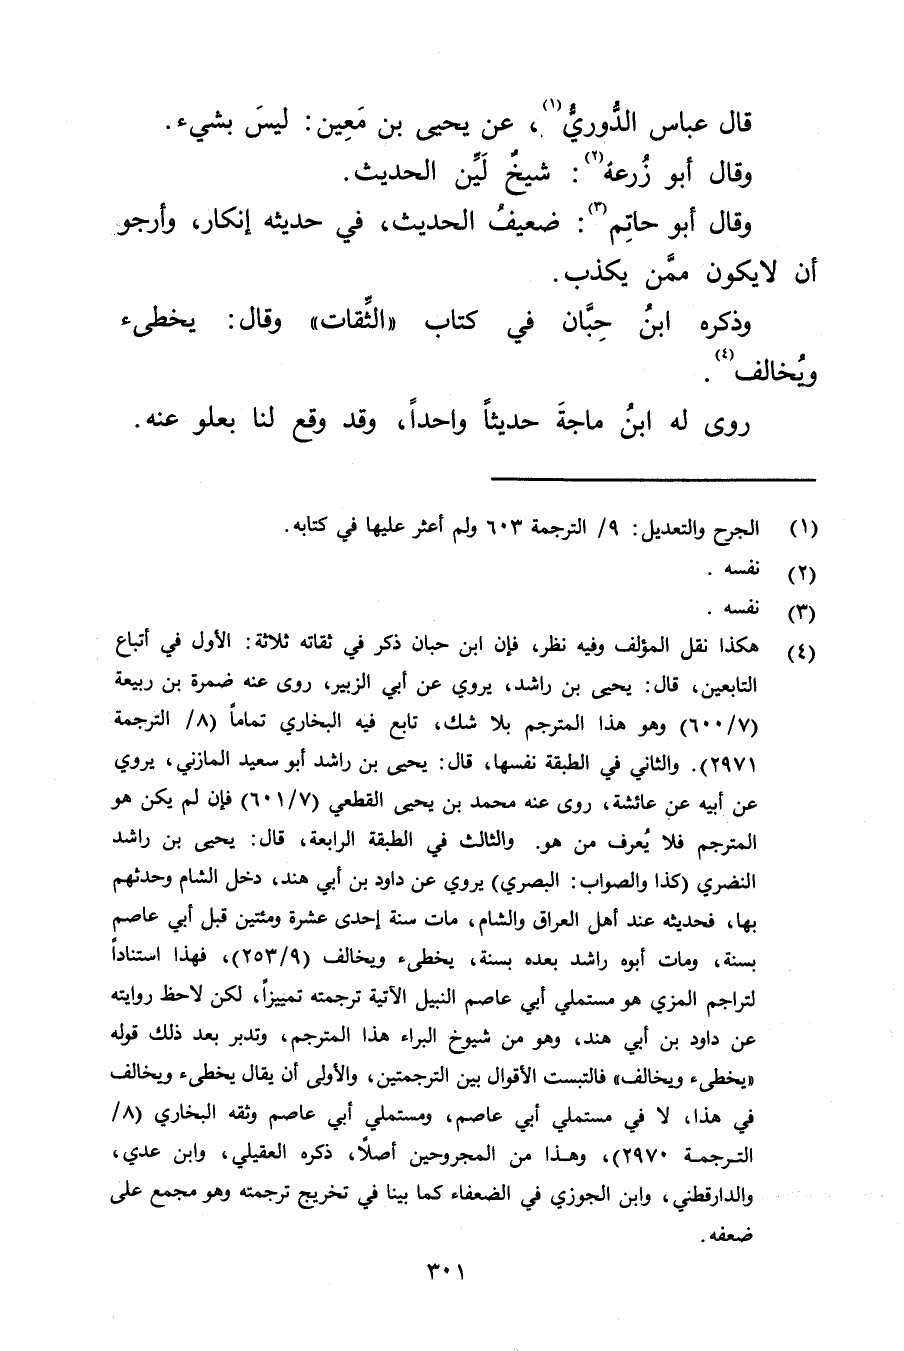 قال عباس الدُّوريُّ(١)، عن يحيى بن مَعِين: ليسَ بشيء.
وقال أبو زُرعة(٢): شيخٌ لَيِّن الحديث.
وقال أبو حاتِم(٣): ضعيفُ الحديث، في حديثه إنكار، وأرجو
أن لايكون ممَّن يكذب.
وذكره ابنُ حِبَّان في كتاب «الثِّقات» وقال: يخطىء
ويُخالف(٤).
روى له ابنُ ماجةَ حديثاً واحداً، وقد وقع لنا بعلو عنه.
(١) الجرح والتعديل: ٩/ الترجمة ٦٠٣ ولم أعثر عليها في كتابه.
(٢) نفسه.
(٣) نفسه.
(٤) هكذا نقل المؤلف وفيه نظر، فإن ابن حبان ذكر في ثقاته ثلاثة: الأول في أتباع
التابعين، قال: يحيى بن راشد، يروي عن أبي الزبير، روى عنه ضمرة بن ربيعة
(٧/ ٦٠٠) وهو هذا المترجم بلا شك، تابع فيه البخاري تماماً (٨/ الترجمة
٢٩٧١). والثاني في الطبقة نفسها، قال: يحيى بن راشد أبو سعيد المازني، يروي
عن أبيه عن عائشة، روى عنه محمد بن يحيى القطعي (٧/ ٦٠١) فإن لم يكن هو
المترجم فلا يُعرف من هو. والثالث في الطبقة الرابعة، قال: يحيى بن راشد
النضري (كذا والصواب: البصري) يروي عن داود بن أبي هند، دخل الشام وحدثهم
بها، فحديثه عند أهل العراق والشام، مات سنة إحدى عشرة ومئتين قبل أبي عاصم
بسنة، ومات أبوه راشد بعده بسنة، يخطىء ويخالف (٩/ ٢٥٣)، فهذا استناداً
لتراجم المزي هو مستملي أبي عاصم النبيل الآتية ترجمته تمييزاً، لكن لاحظ روايته
عن داود بن أبي هند، وهو من شيوخ البراء هذا المترجم، وتدبر بعد ذلك قوله
«يخطىء ويخالف» فالتبست الأقوال بين الترجمتين، والأولى أن يقال يخطىء ويخالف
في هذا، لا في مستملي أبي عاصم، ومستملي أبي عاصم وثقه البخاري (٨/
الترجمة ٢٩٧٠)، وهذا من المجروحين أصلًا، ذكره العقيلي، وابن عدي،
والدارقطني، وابن الجوزي في الضعفاء كما بينا في تخريج ترجمته وهو مجمع على
ضعفه.
٣٠١